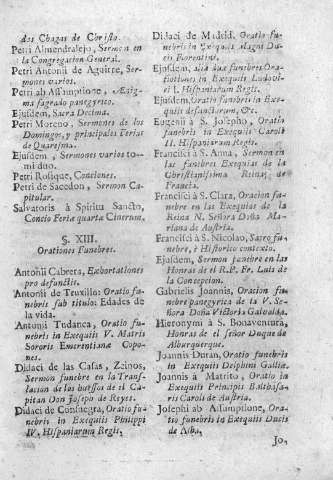 dos Chagas de Christo.
Petri Almendralejo, Sermon en
la Congregacion General.
Petri Antonii de Aguirre, Ser-
mones varios.
Petri ab Assumptione, Ænig-
ma sagrado panegyrico.
Ejusdem, Sacra Decima.
Petri Moreno, Sermones de los
Domingos, y principales Ferias
de Quaresma.
Ejusdem, Sermones varios to-
mi duo.
Petri Rosique, Conciones.
Petri de Sacedon, Sermon Ca-
pitular.
Salvatoris à Spiritu Sancto,
Concio Feriæ quartæ Cinerum.
§. XIII.
Orationes Funebres.
Antonii Cabrera, Exhortationes
pro defunctis.
Antonii de Truxillo: Oratio fu-
nebris sub titulo: Edades de
la vida.
Antonii Tudanca, Oratio fu-
nebris in Exequiis V. Matris
Sororis Emerentianæ Copo-
nes.
Didaci de las Casas, Zeinos,
Sermon funebre en la Trans-
lacion de los huessos de el Ca-
pitan Don Joseph de Reyes.
Didaci de Consuegra, Oratio fu-
nebris in Exequiis Philippi
IV. Hispaniarum Regis.
Didaci de Madrid, Oratio fu-
nebris in Exequiis Magni Du-
cis Florentini.
Ejusdem, aliæ duæ funebres Ora-
tiones in Exequiis Ludovi-
ci I. Hispaniarum Regis.
Ejusdem, Oratio funebris in Exe-
quiis defunctarum, &c.
Eugenii à S. Josepho, Oratio
funebris in Exequiis Caroli
II. Hispaniarum Regis.
Francisci à S. Anna, Sermon en
las funebres Exequias de la
Christianissima Reina de
Francia.
Francisci à S. Clara, Oracion fu-
nebre en las Exequias de la
Reina N. Señora Doña Ma-
riana de Austria.
Francisci à S. Nicolao, Sacro fu-
nebre, è Historico contexto.
Ejusdem, Sermon funebre en las
Honras de el R.P. Fr. Luis de
la Concepcion.
Gabrielis Joannis, Oracion fu-
nebre panegyrica de la V. Se-
ñora Doña Victoria
Hieronymi à S. Bonaventura,
Honras de el señor Duque de
Alburquerque.
Joannis Duran, Oratio funebris
in Exequiis Delphini Galliæ.
Joannis à Matrito, Oratio in
Exequiis Principis Balthasa-
ris Caroli de Austria.
Josephi ab Assumptione, Ora-
tio funebris in Exequiis Ducis
de Alba.
Jo-